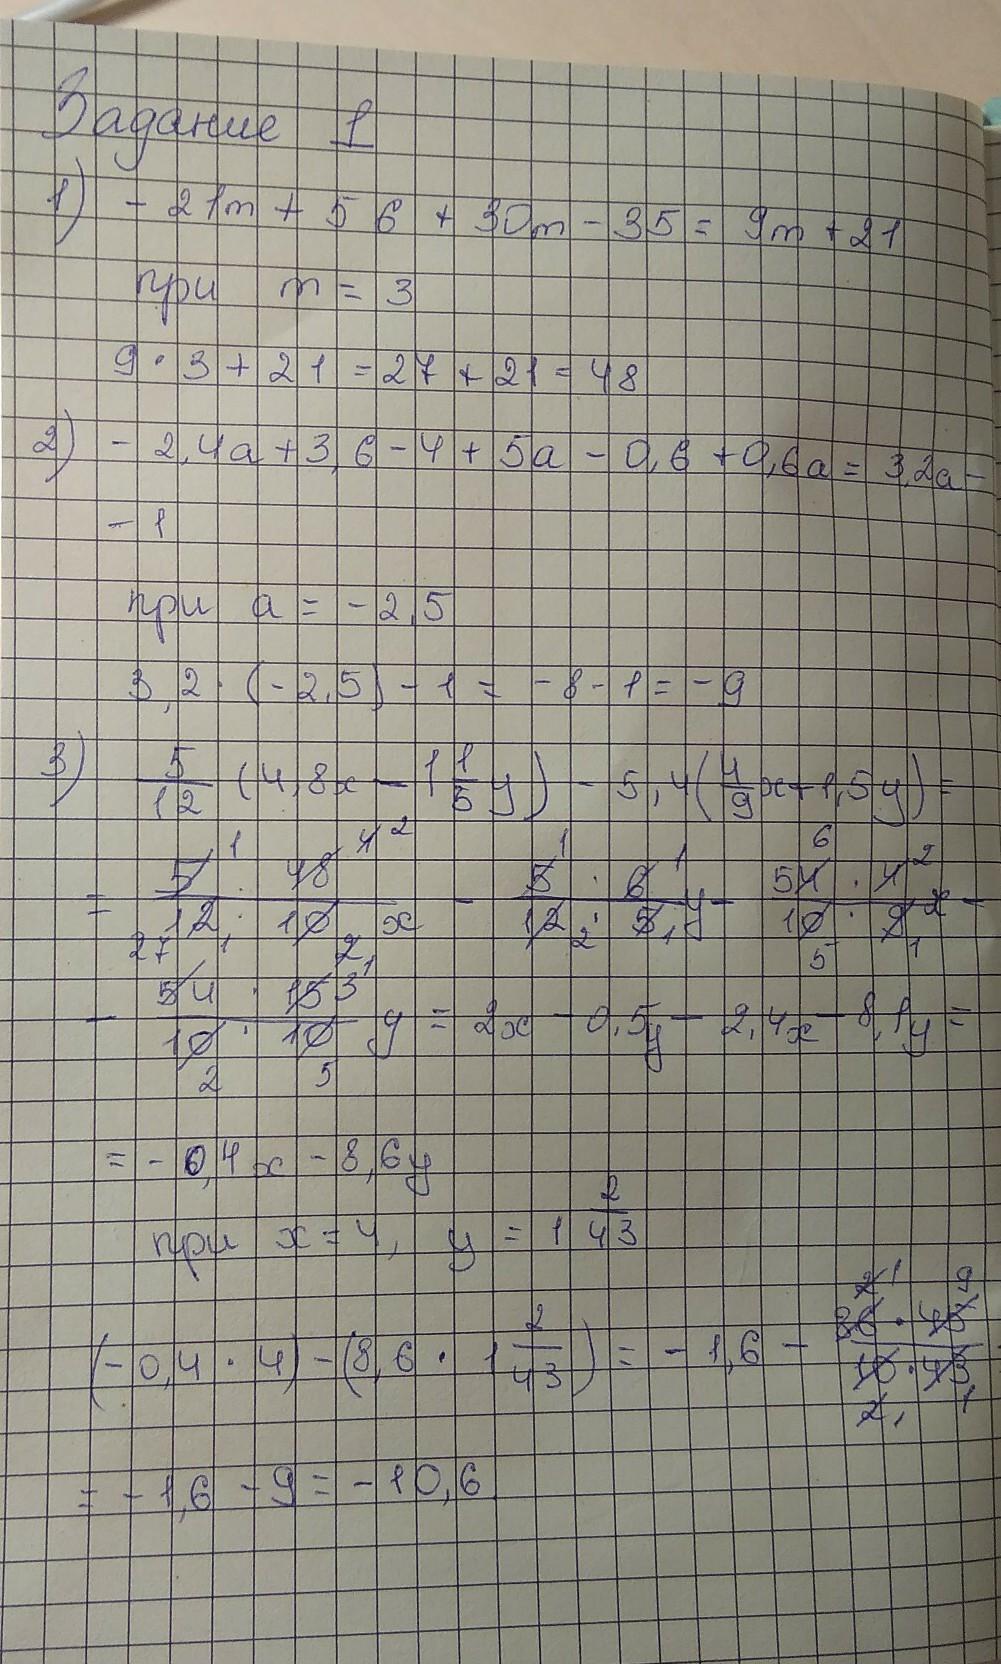 Задание 1
1) - 21m + 56 + 30m - 35 = 9m + 21
при m = 3
9 · 3 + 21 = 27 + 21 = 48
2) - 2,4a + 3,6 - 4 + 5a - 0,6 + 0,6a = 3,2a -
- 1
при a = - 2,5
3,2 · (- 2,5) - 1 = - 8 - 1 = - 9
3) 5/12 (4,8x - 1 1/5 y) - 5,4 (4/9 x + 1,5y) =
= 5 · 48 / 12 · 10 x - 5 · 6 / 12 · 5 y - 54 · 4 / 10 · 9 x -
- 54 · 15 / 10 · 10 y = 2x - 0,5y - 2,4x - 8,1y =
= - 0,4x - 8,6y
при x = 4, y = 1 2/43
(- 0,4 · 4) - (8,6 · 1 2/43) = - 1,6 - 86 · 45 / 10 · 43
= - 1,6 - 9 = - 10,6